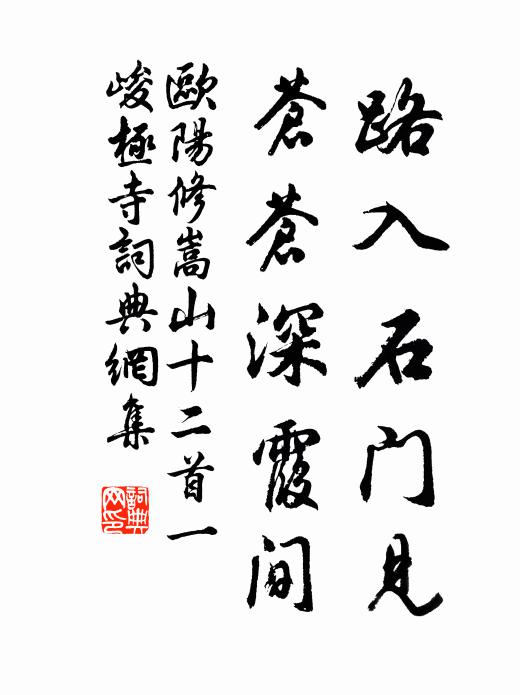 路入石门見
蒼蒼深霞间
歐陽修嵩山十二首一
峻極寺詞典網集
詞典
网印